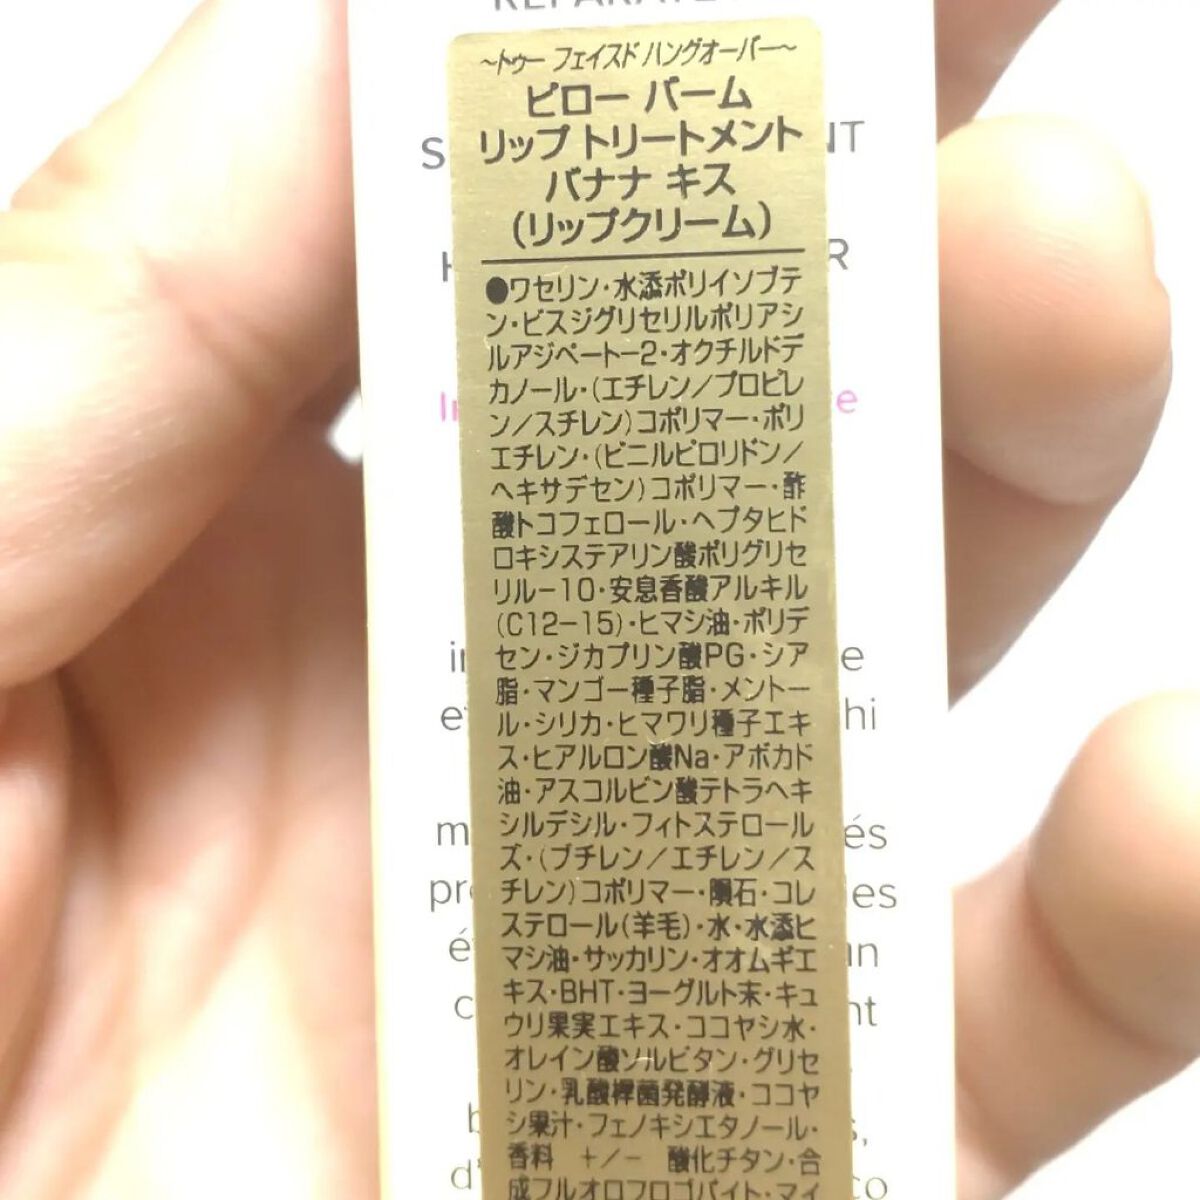 ～トゥー フェイスド ハングオーバー～
ピロー バーム
リップ トリートメント
バナナ キス
(リップクリーム)
●ワセリン・水添ポリイソブテ
ン・ビスジグリセリルポリアシ
ルアジペート－2・オクチルドデ
カノール・(エチレン／プロピレ
ン／スチレン)コポリマー・ポリ
エチレン・(ビニルピロリドン／
ヘキサデセン)コポリマー・酢
酸トコフェロール・ヘプタヒド
ロキシステアリン酸ポリグリセ
リル－10・安息香酸アルキル
(C12－15)・ヒマシ油・ポリデ
セン・ジカプリン酸PG・シア
脂・マンゴー種子脂・メントー
ル・シリカ・ヒマワリ種子エキ
ス・ヒアルロン酸Na・アボカド
油・アスコルビン酸テトラヘキ
シルデシル・フィトステロール
ズ・(ブチレン／エチレン／ス
チレン)コポリマー・隕石・コレ
ステロール(羊毛)・水・水添ヒ
マシ油・サッカリン・オオムギエ
キス・BHT・ヨーグルト末・キュ
ウリ果実エキス・ココヤシ水・
オレイン酸ソルビタン・グリセ
リン・乳酸桿菌発酵液・ココヤ
シ果汁・フェノキシエタノール・
香料 +／− 酸化チタン・合
成フルオロフロゴパイト・マイ